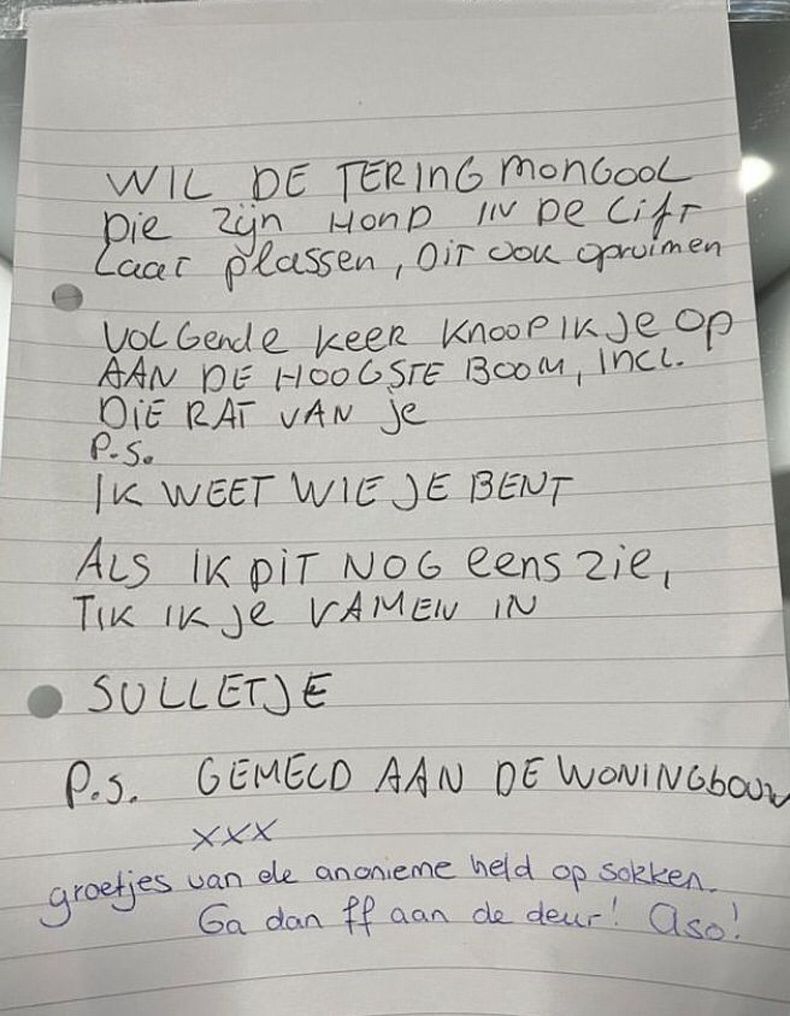 WIL DE TERING MONGOOL
Die Zijn HOND IN De Lift
Laat plassen, Dit ook opruimen
VOLGende keer knoop ik je op
AAN DE HOOGSTE BOOM, incl.
DIE RAT VAN je
P.S.
IK WEET WIE JE BENT
ALS IK DIT NOG eens zie,
TIK IK je RAMEN IN
SULLETJE
P.S. GEMELD AAN DE WONINGbouw
xxx
groetjes van de anonieme held op sokken.
Ga dan ff aan de deur! Aso!